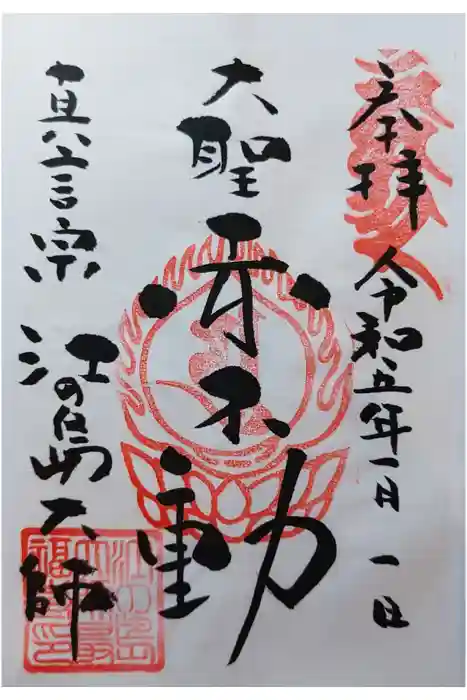 奉拝 令和五年一月一日
大聖赤不動
真言宗 江の島大師
江の島